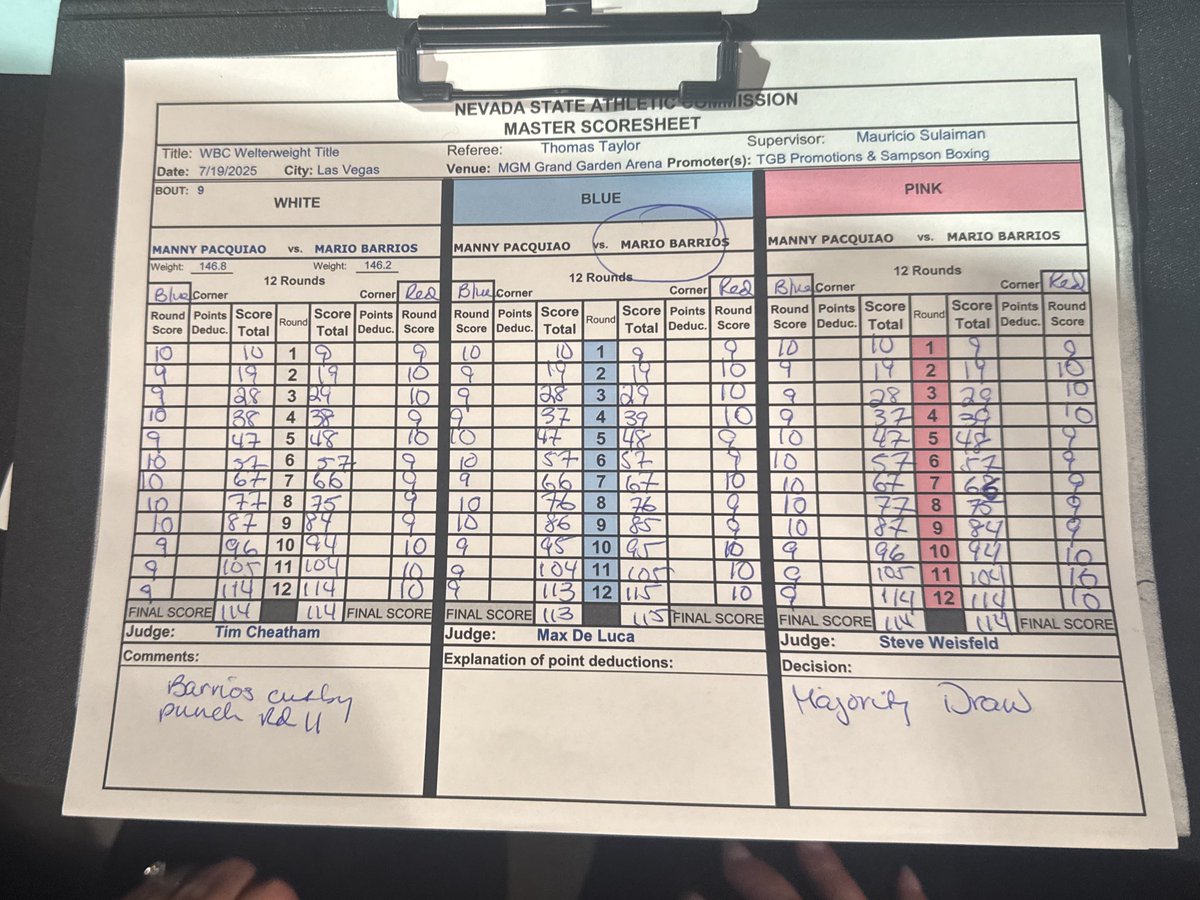 NEVADA STATE ATHLETIC COMMISSION
MASTER SCORESHEET
Title: WBC Welterweight Title Referee: Thomas Taylor Supervisor: Mauricio Sulaiman
Date: 7/19/2025 City: Las Vegas Venue: MGM Grand Garden Arena Promoter(s): TGB Promotions & Sampson Boxing
BOUT: 9
WHITE BLUE PINK
MANNY PACQUIAO vs. MARIO BARRIOS MANNY PACQUIAO vs. MARIO BARRIOS MANNY PACQUIAO vs. MARIO BARRIOS
Weight: 146.8 Weight: 146.2
12 Rounds 12 Rounds 12 Rounds
Blue Corner Corner Red Blue Corner Corner Red Blue Corner Corner Red
Round Points Score Round Score Points Round Round Points Score Round Score Points Round Round Points Score Round Score Points Round
Score Deduc. Total Total Deduc. Score Score Deduc. Total Total Deduc. Score Score Deduc. Total Total Deduc. Score
10 10 1 9 9 10 10 1 9 9 10 10 1 9 9
9 19 2 19 10 9 19 2 19 10 9 19 2 19 10
9 28 3 29 10 9 28 3 29 10 9 28 3 29 10
10 38 4 38 9 9 37 4 39 10 9 37 4 39 10
9 47 5 48 10 10 47 5 48 9 10 47 5 48 9
10 57 6 57 9 10 57 6 57 9 10 57 6 57 9
10 67 7 66 9 9 66 7 67 10 10 67 7 66 9
10 77 8 75 9 10 76 8 76 9 10 77 8 75 9
10 87 9 84 9 10 86 9 85 9 10 87 9 84 9
9 96 10 94 10 9 95 10 95 10 9 96 10 94 10
9 105 11 104 10 9 104 11 105 10 9 105 11 104 10
9 114 12 114 10 9 113 12 115 10 9 114 12 114 10
FINAL SCORE 114 114 FINAL SCORE FINAL SCORE 113 115 FINAL SCORE FINAL SCORE 114 114 FINAL SCORE
Judge: Tim Cheatham Judge: Max De Luca Judge: Steve Weisfeld
Comments: Explanation of point deductions: Decision:
Barrios cut by Majority Draw
punch Rd 11